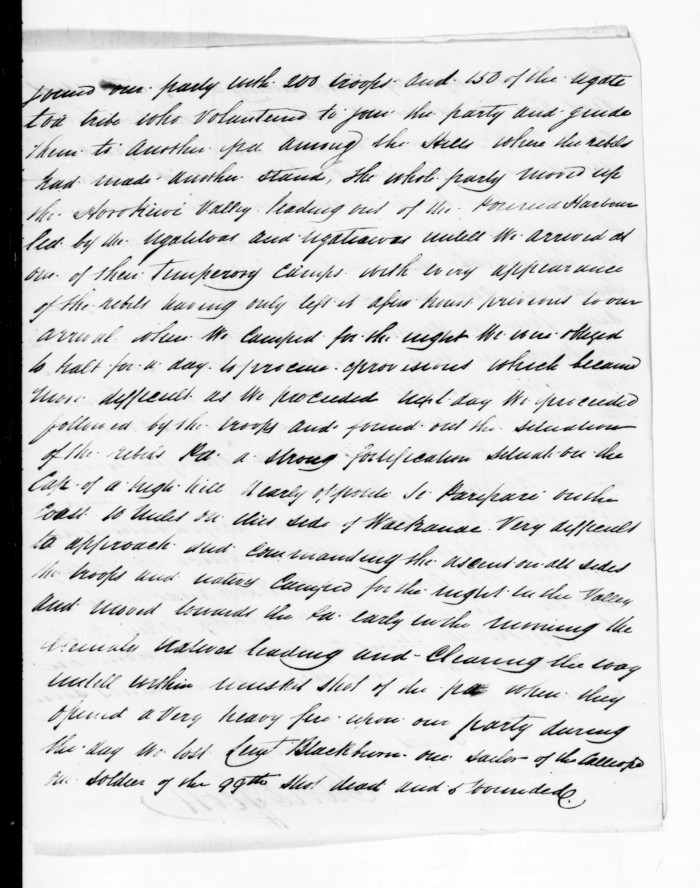 joined our party with 200 troops and 150 of the Ngate
toa tribe who volunteered to join the party and guide
them to another pa among the Hills where the rebels
had made another stand, the whole party moved up
the Horokiwi Valley leading out of the Porerua Harbour
led by the Ngatitoas and Ngatiawas untill we arrived at
one of their Temperory Camps with every appearance
of the rebels having only left it a few hours previous to our
arrival when we camped for the night we were obliged
to halt for a day to procure provisions which became
more difficult as we proceeded next day we proceeded
followed by the troops and found out the situation
of the rebels Pa a strong fortification situat on the
Cap of a high hill Nearly opposite to Paripari on the
Coast 10 miles on this side of Waekanae Very difficult
to approach and commanding the ascent on all sides
the troops and natives Camped for the night in the Valley
and moved towards the Pa early in the morning the
friendly Natives leading and Clearing the way
untill within musket shot of the pa when they
opened a very heavy fire upon our party during
the day we lost Leut Blackburn one sailor of the Calliope
one soldier of the 99th shot dead and 5 wounded